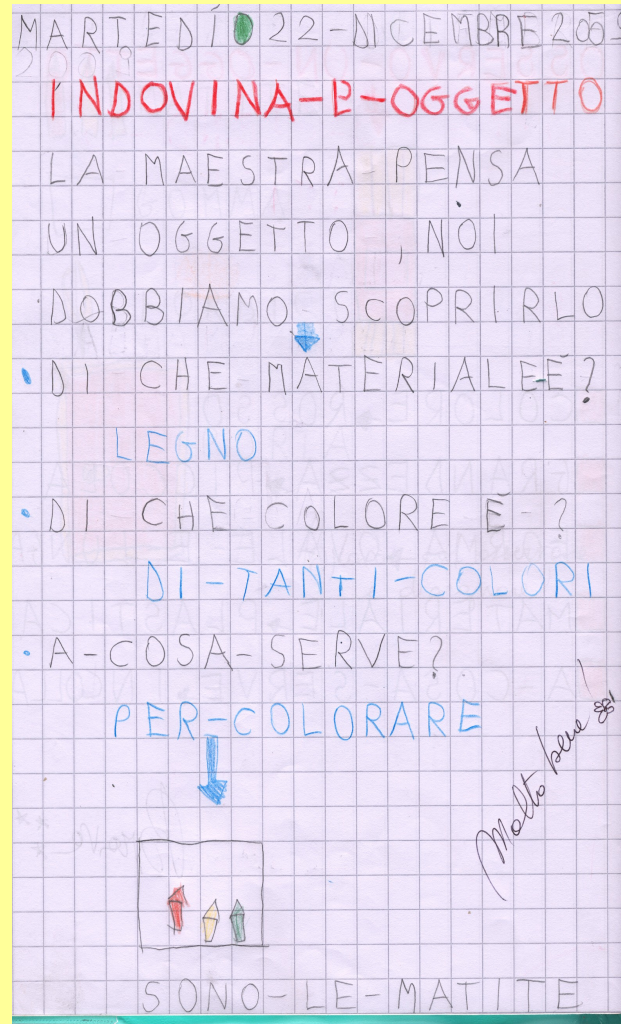 MARTEDÍ 22-DICEMBRE 2009
INDOVINA-L'-OGGETTO
LA MAESTRA PENSA
UN OGGETTO, NOI
DOBBIAMO SCOPRIRLO
DI CHE MATERIALE-È?
LEGNO
DI CHE COLORE È-?
DI-TANTI-COLORI
A-COSA-SERVE?
PER-COLORARE
Molto bene
SONO-LE-MATITE